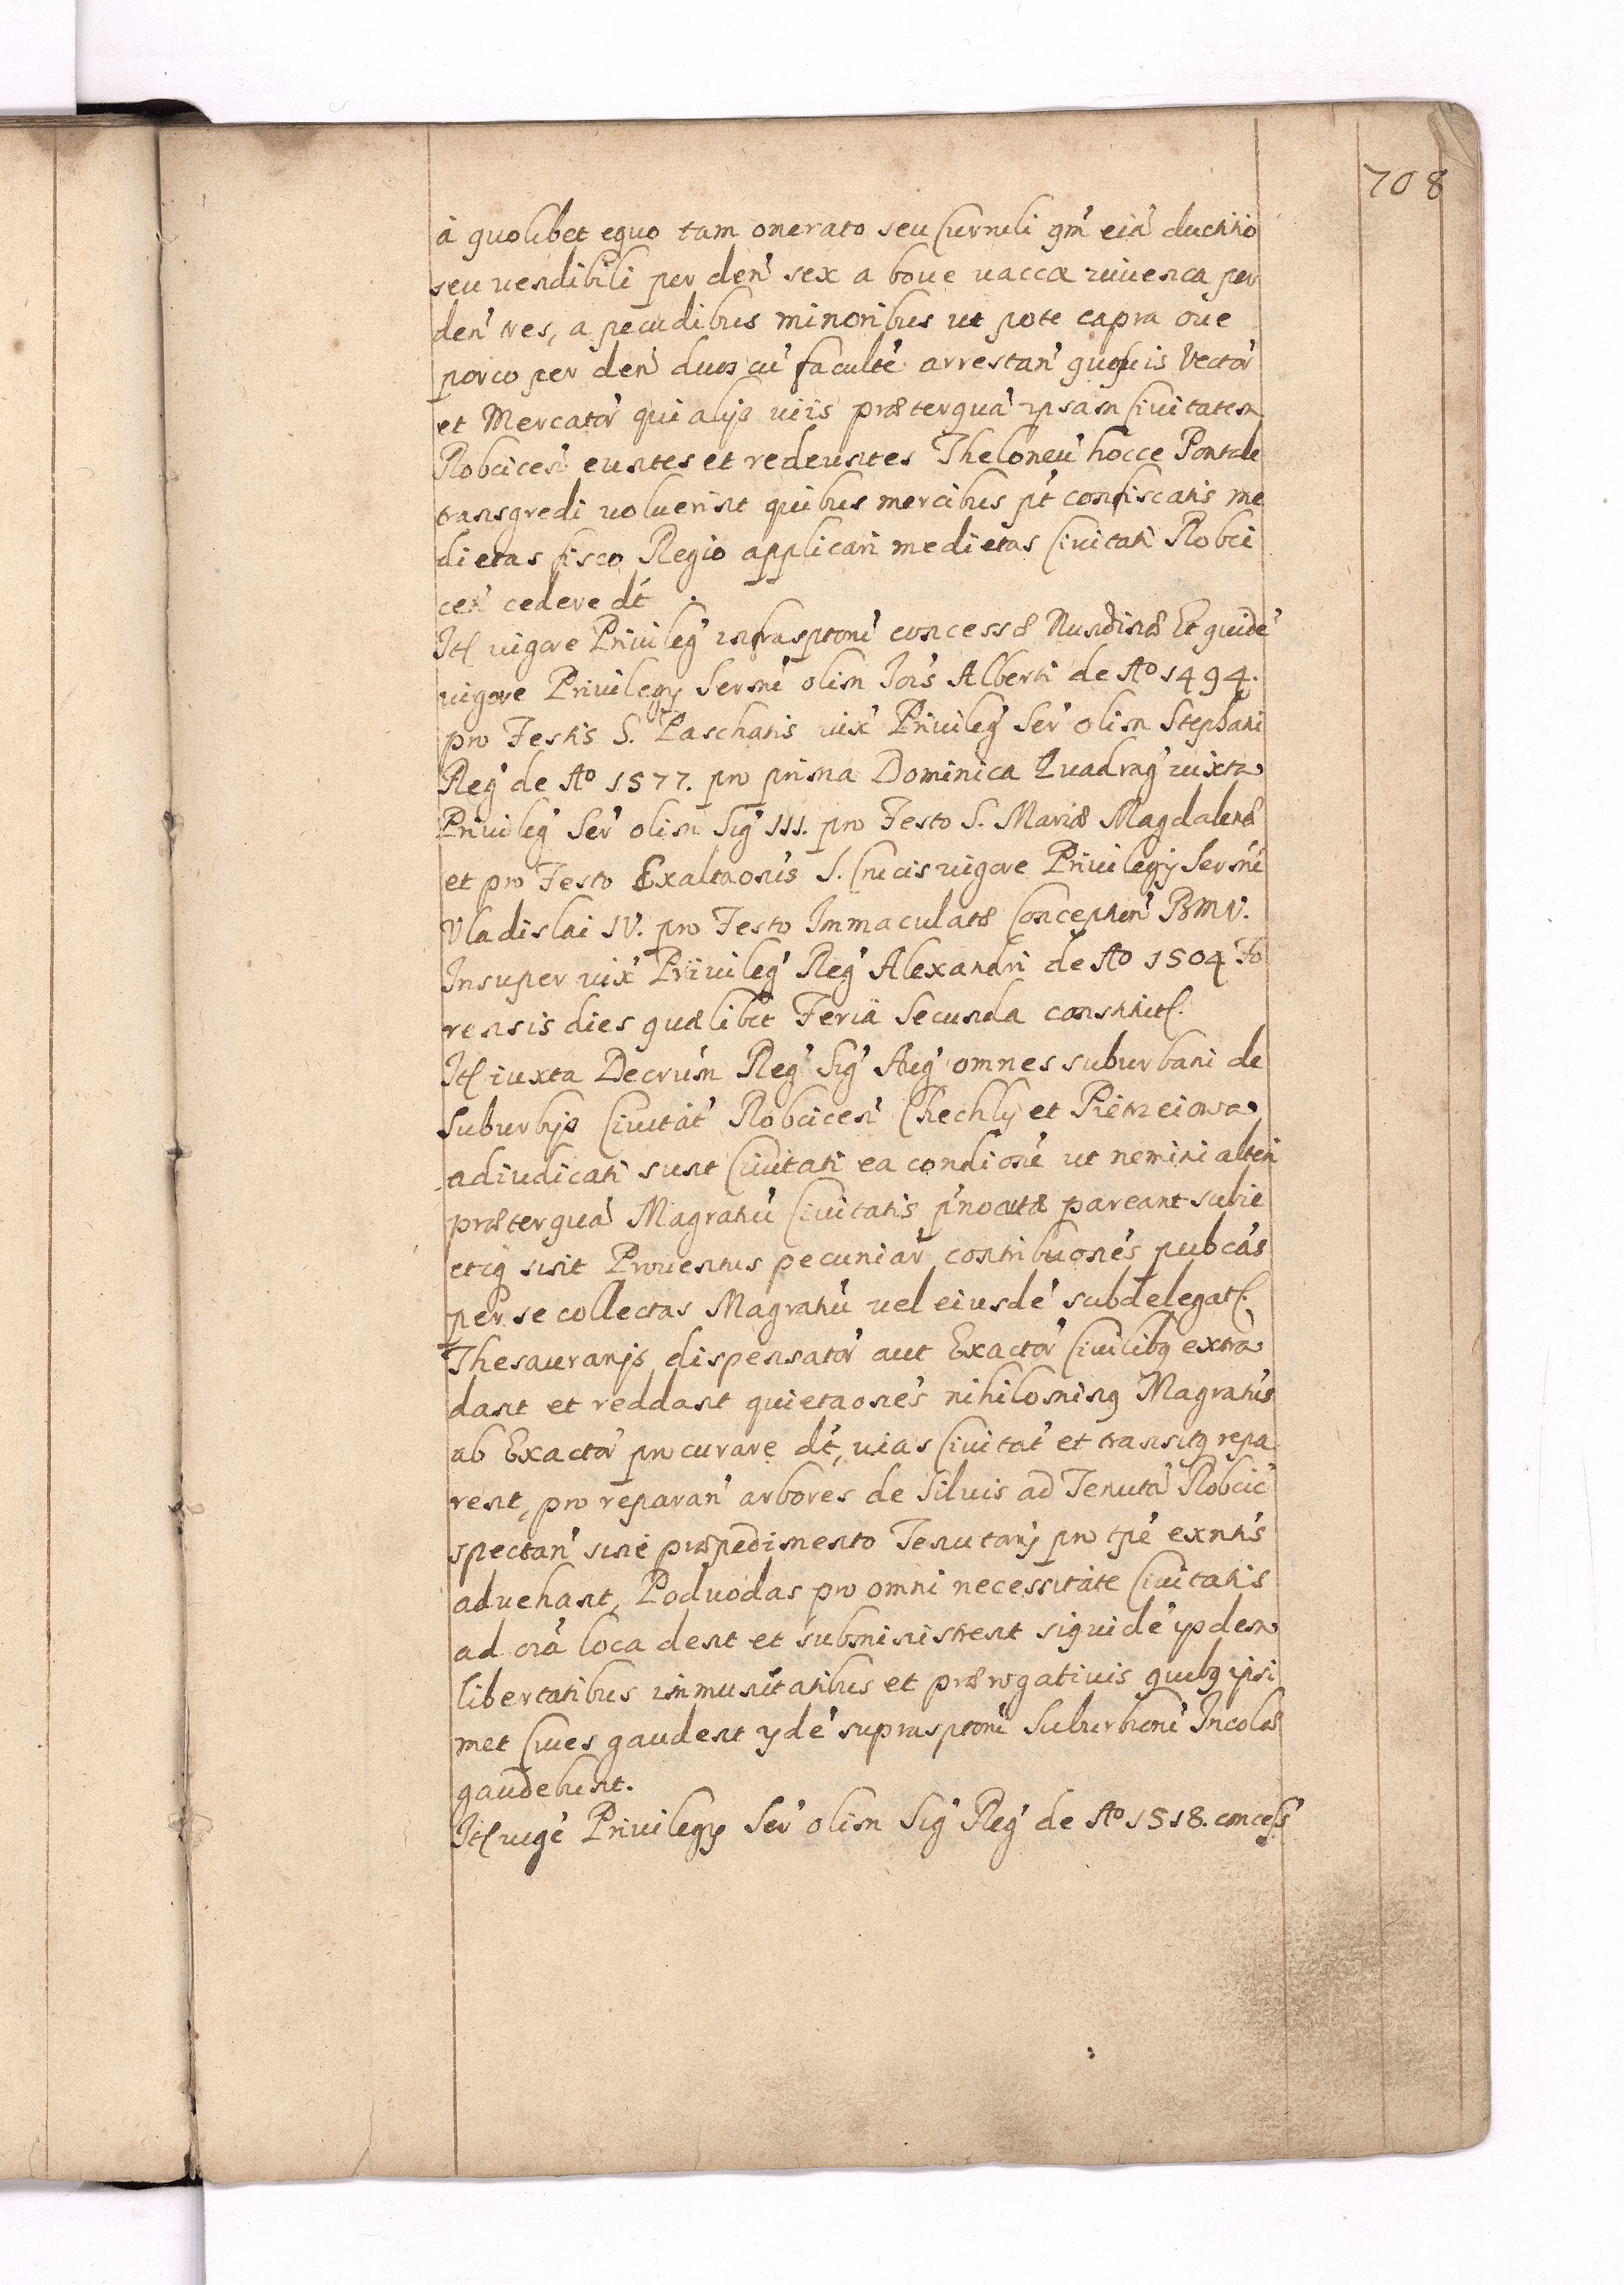 708
à quolibet equo tam onerato seu Curruli qm̃ eiã ductitio
seu vendibili per den̕ sex a boue vacca iuuenca per
den̕ tres, a pecudibus minoribus ut pote capra oue
porco per den̕ duos cū facultē arrestan̕ quosuis Vector̕
et Mercator̕ qui alijs viis præterquã ipsam Ciuitatem
Robcicen̕ euntes et redeuntes Theloneũ hocce Pontale
transgredi voluerint quibus mercibus pt̕ confiscatis me
dietas fisco Regio applicari medietas Ciuitati Robci
cen̕ cedere dt̕
Itē vigore Privileg̕ infrasptorū concessæ Nundinæ Et quidē
vigore Privilegij Sermi̕ olim Jois̕ Alberti de Aº 1494.
pro Festis S. Paschatis iux̕ Privileg̕ Ser̕ olim Stephani
Reg̕ de Aº 1577. pro prima Dominica Quadrag̕ iuxta
Privileg̕ Ser̕ olim Sig̕ III. pro Festo S. Mariæ Magdalenæ
et pro Festo Exaltaonis̕ S. Crucis vigore Privilegij Sermi̕
Vladislai IV. pro Festo Immaculatæ Conception̕ BMV.
Insuper iux̕ Privileg̕ Reg̕ Alexandri de Aº 1504 Fo
rensis dies quælibet Feria Secunda constituit̕.
Itē iuxta Decrum̕ Reg̕ Sig̕ Aug̕ omnes suburbani de
Suburbijs Ciuitat̕ Robcicen̕ Chechly et Pietrzeiowa
adiudicati sunt Ciuitati ea condione̕ ut nemini alteri
præterquã Magratui̕ Ciuitatis p̕nocitatæ pareant subie
ctiq sint Prouentus pecuniar̕ contribuones̕ pubcas̕
per se collectas Magratui̕ vel eiusdē subdelegat̕.
Thesaurarijs dispensator̕ aut Exactor̕ Ciuilibq extra
dant et reddant quietaones̕ nihilominq Magratus̕
ab Exactor̕ procurare dt̕, vias Ciuitat̕ et transitq repa
rent, pro reparan̕ arbores de Siluis ad Tenutã Robcic̕
spectan̕ sine præpedimento Tenutarij pro tpe̕ exntis̕
aduehant, Podwodas pro omni necessitate Ciuitatis
ad oia̕ loca dent et subministrent siquidē ijsdem
libertatibus immunitatibus et prærogatiuis quibq ipsi
met Ciues gaudent ijdē suprasptorū Suburbiorū Incolæ
gaudebunt.
Itē vigē Privilegij Ser̕ olim Sig̕ Reg̕ de Aº 1518. concess̕